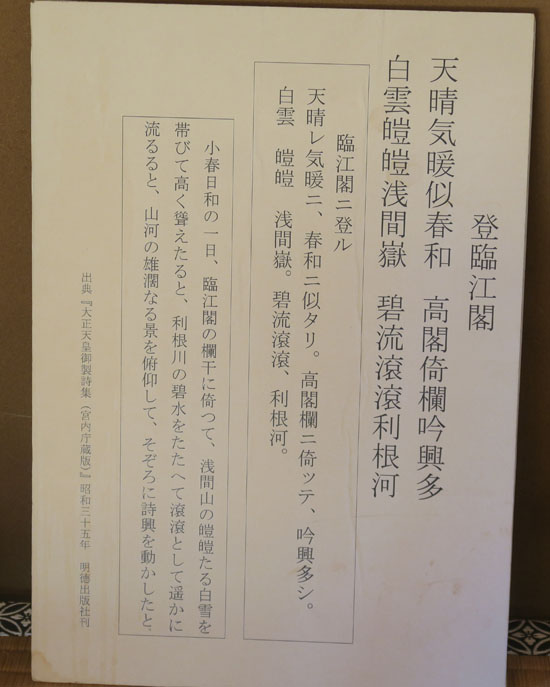 登臨江閣
天晴気暖似春和　高閣倚欄吟興多
白雲皚皚浅間嶽　碧流滾滾利根河
臨江閣ニ登ル
天晴レ気暖ニ、春和ニ似タリ。高閣欄ニ倚ッテ、吟興多シ。
白雲　皚皚　浅間嶽。碧流滾滾、利根河。
小春日和の一日、臨江閣の欄干に倚つて、浅間山の皚皚たる白雪を
帯びて高く聳えたると、利根川の碧水をたたへて滾滾として遥かに
流るると、山河の雄濶なる景を俯仰して、そぞろに詩興を動かしたと
出典『大正天皇御製詩集（宮内庁蔵版）』昭和三十五年　明徳出版社刊